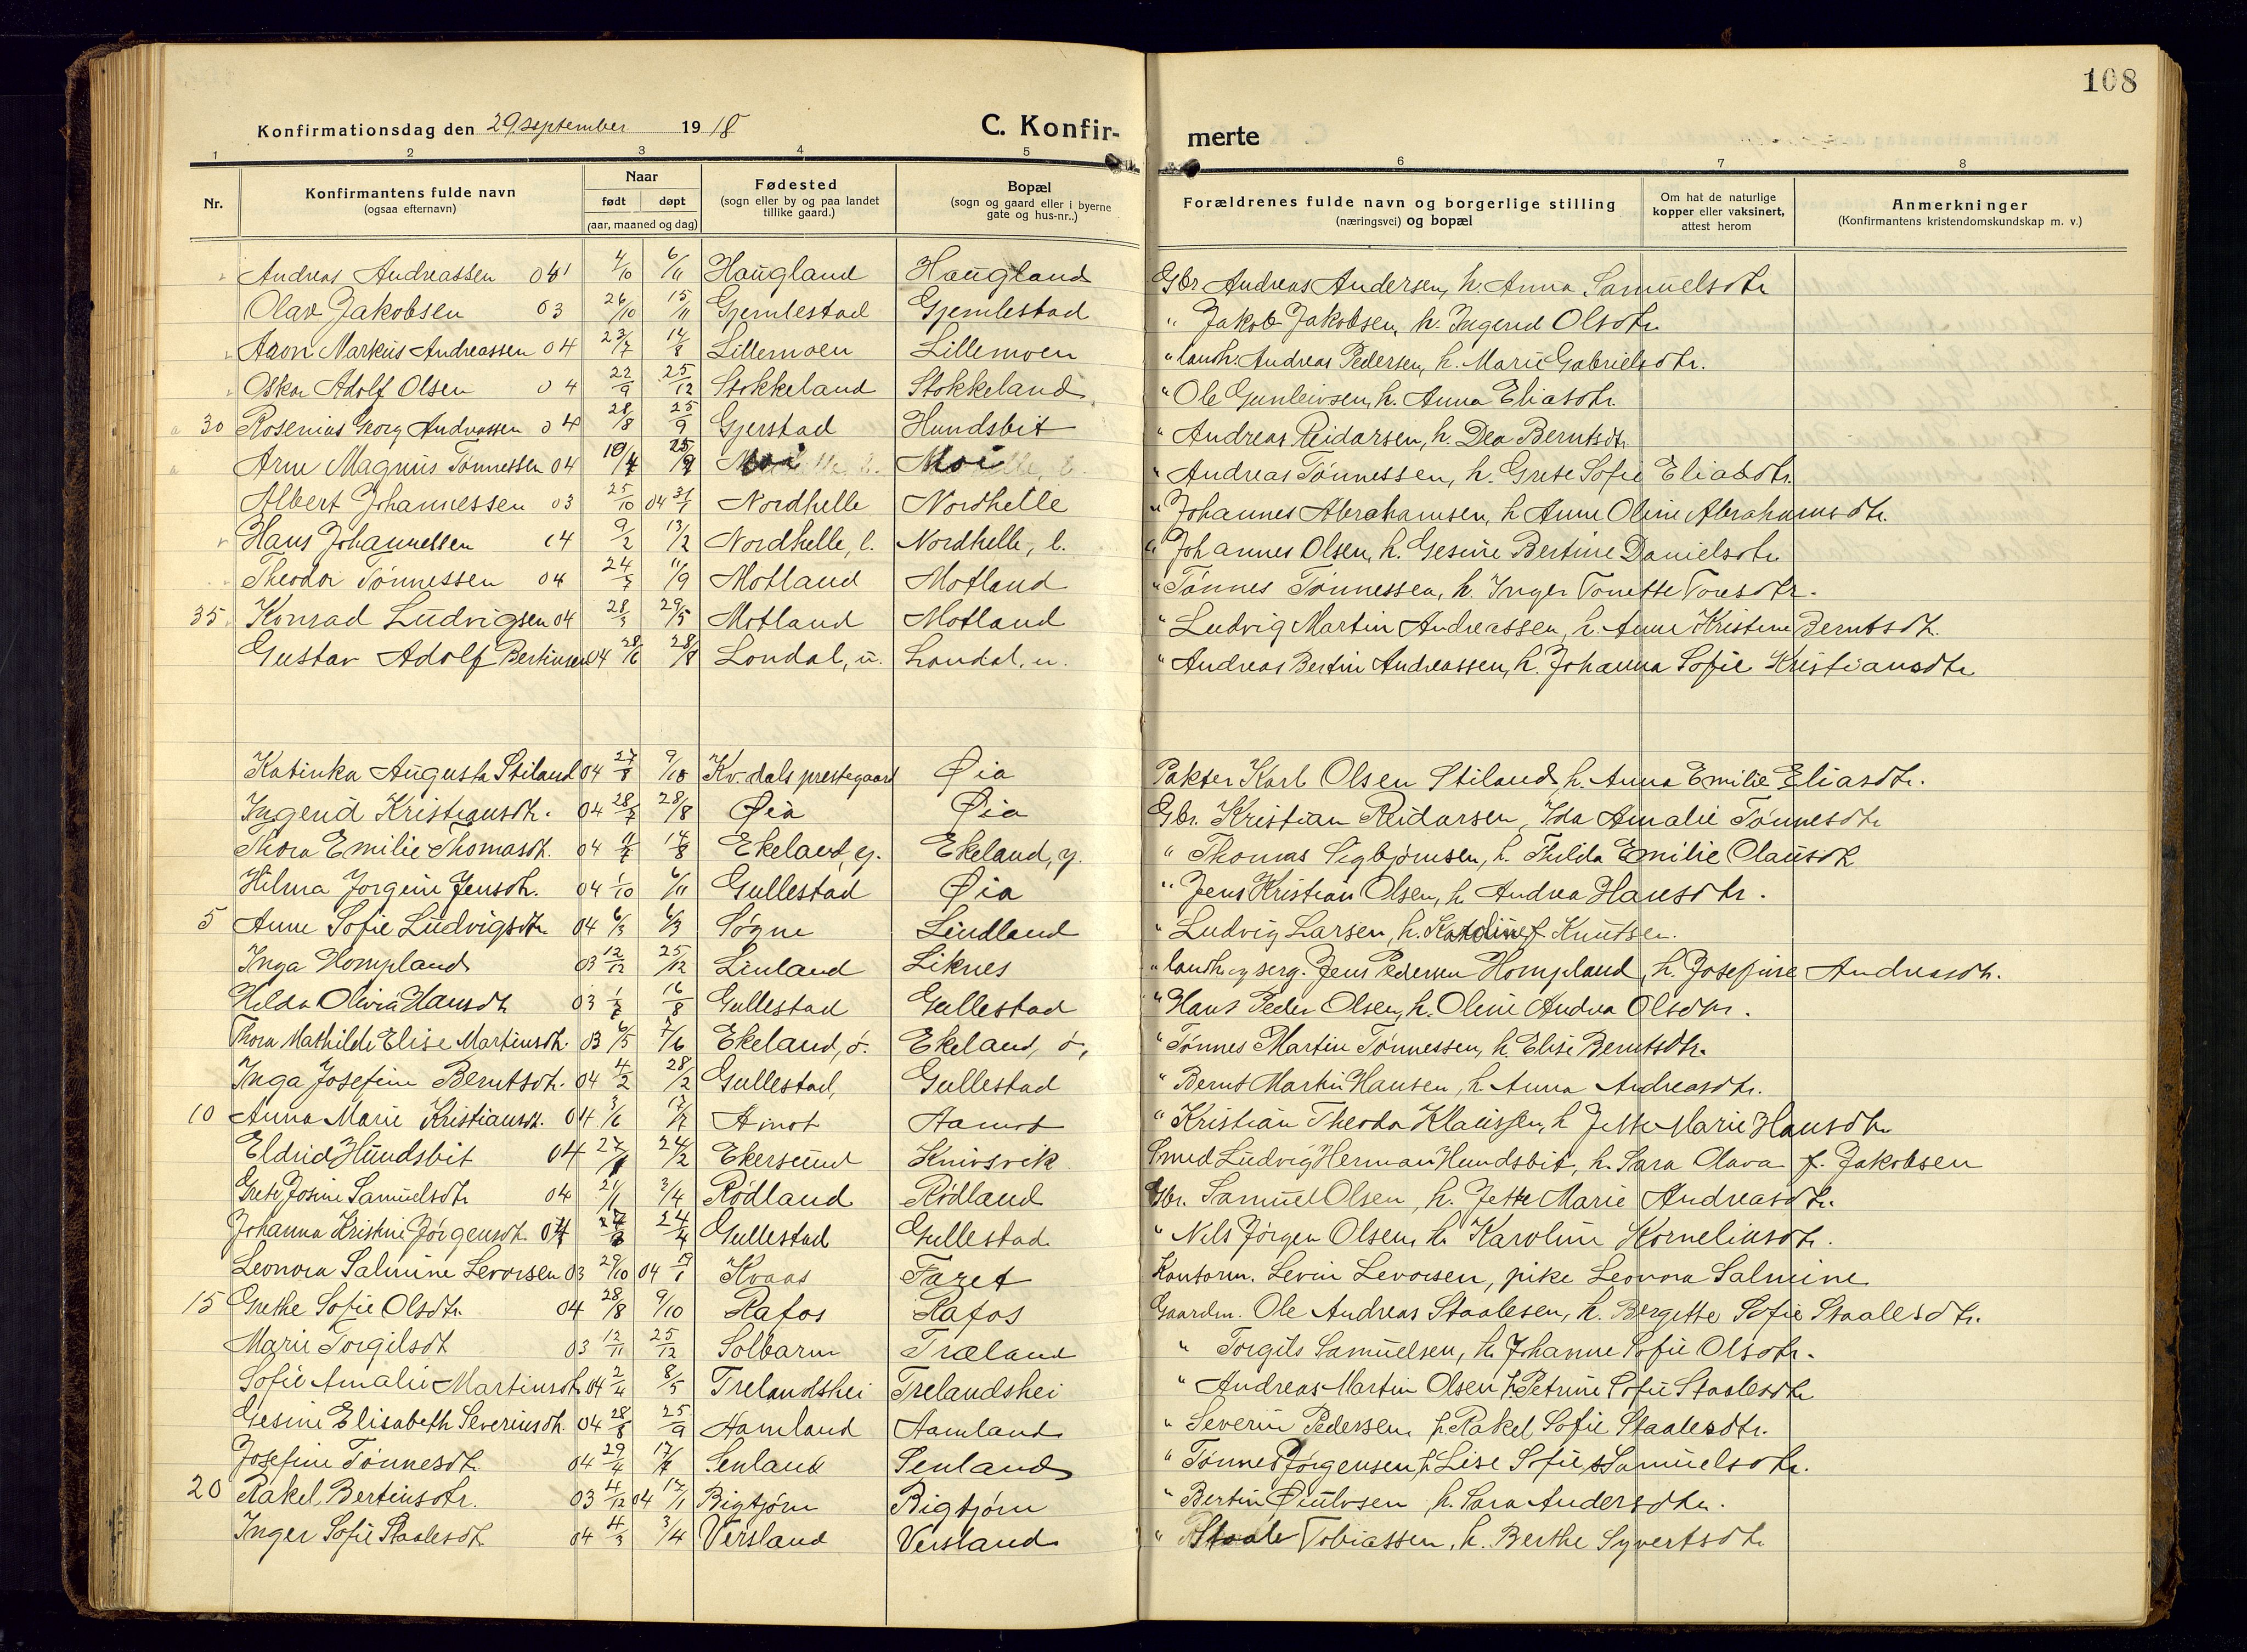 108
Konfirmationsdag den 29 september 1918 C. Konfir- merte
1 2 3 4 5 6 7 8
Nr. Konfirmantens fulde navn (ogsaa efternavn) Naar født døpt (aar, maaned og dag) Fødested (sogn eller by og paa landet tillike gaard.) Bopæl (sogn og gaard eller i byerne gate og hus-nr.) Forældrenes fulde navn og borgerlige stilling (næringsvei) og bopæl Om hat de naturlige kopper eller vaksinert, attest herom Anmerkninger (Konfirmantens kristendomskundskap m. v.)
Andreas Andreassen 04 4/10 6/11 Haugland Haugland Gbr. Andreas Andersen, h. Anna Samuelsdtr
Olav Jakobsen 03 26/10 15/11 Gjemlestad Gjemlestad " Jakob Jakobsen, h. Ingerid Olsdtr.
Aaon Markus Andreassen 04 23/7 14/8 Lillemoen Lillemoen " landh. Andreas Pedersen, h. Marie Gabrielsdtr.
Oskar Adolf Olsen 04 22/9 25/12 Stokkeland Stokkeland " Ole Gunleivsen, h. Anna Eliasdtr.
30 Rosenius Georg Andreassen 04 28/8 25/9 Gjerstad Hundsbit " Andreas Reidarsen, h. Dea Berntsdtr
Arne Magnus Tønnessen 04 Moi Moi " Andreas Tønnessen, h. Grete Sofie Eliasdtr.
Albert Johannessen 03 25/10 04 31/1 Nordhelle Nordhelle " Johannes Abrahamsen, h. Anne Oline Abrahamsdtr.
Hans Johannessen 04 9/2 13/2 Nordhelle, l. Nordhelle, l. " Johannes Olsen, h. Gesine Bertine Danielsdtr
Theodor Tønnessen 04 24/7 11/9 Motland Motland " Tønnes Tønnessen, h. Inger Tonette Toresdtr.
35 Konrad Ludvigsen 04 28/3 29/5 Motland Motland " Ludvig Martin Andreassen, h. Anne Kristine Berntsdtr.
Gustav Adolf Bertinsen 04 28/6 28/8 Londal, u. Londal, u. " Andreas Bertin Andreassen, h. Johanna Sofie Kristiansdtr
Katinka Augusta Stiland 04 27/8 9/10 Kv.dals prestegaard Øia Pakter Karl Olsen Stiland, h. Anna Emilie Eliasdtr.
Ingerid Kristiansdtr. 04 28/7 28/8 Øia Øia Gbr. Kristian Reidarsen, Ida Amalie Tønnesdtr
Thora Emilie Thomasdtr. 04 11/7 14/8 Ekeland, y. Ekeland, y. " Thomas Sigbjørnsen, h. Thilda Emilie Olausdtr
Hilma Jorgine Jensdtr. 04 1/10 6/11 Gullestad Øia " Jens Kristian Olsen, h. Andrea Hansdtr.
5 Anne Sofie Ludvigsdtr 04 6/3 6/3 Søgne Lindland " Ludvig Larsen, h. Karoline f. Knutsen.
Inga Hompland 03 12/12 25/12 Linland Liknes " landh. og serg. Jens Pedersen Hompland, h. Josefine Andreasdtr.
Hilda Olivia Hansdtr 03 1/7 16/8 Gullestad Gullestad " Hans Peder Olsen, h. Oline Andrea Olsdtr.
Thora Mathilde Elise Martinsdtr. 03 6/5 7/6 Ekeland, ø. Ekeland, ø. " Tønnes Martin Tønnessen, h. Elise Berntsdtr.
Inga Josefine Berntsdtr. 04 4/2 28/2 Gullestad, Gullestad " Bernt Martin Hansen, h. Anna Andreasdtr.
10 Anna Marie Kristiansdtr. 04 3/6 17/7 Amot Aamot " Kristian Theodor Klaussen, h. Jette Marie Hansdtr
Eldrid Hundsbit 04 27/1 24/2 Ekersund Knivsvik Smed Ludvig Herman Hundsbit, h. Sara Olava f. Jakobsen
Grete Josine Samuelsdtr 04 21/1 3/4 Rødland Rødland Gbr. Samuel Olsen, h. Jette Marie Andreasdtr.
Johanna Kristine Jørgensdtr. 04 24/4 Gullestad Gullestad " Nils Jørgen Olsen, h. Karoline Korneliusdtr.
Leonora Salmine Levorsen 03 29/10 04 Kvaas Fazet Kontorm. Levin Levorsen, pike Leonora Salmine
15 Grethe Sofie Olsdtr. 04 28/8 9/10 Rafos Rafos Gaardm. Ole Andreas Staalesen, h. Bergitte Sofie Staalesdtr.
Marie Torgilsdtr 03 12/11 25/12 Solbarm Træland " Torgils Samuelsen, h. Johanne Sofie Olsdtr.
Sofie Amalie Martinsdtr 04 2/4 8/5 Trelandshei Trelandshei " Andreas Martin Olsen h. Petrine Sofie Staalesdtr
Gesine Elisabeth Severinsdtr. 04 28/8 25/9 Aamland Aamland " Severin Pedersen, h. Rakel Sofie Staalesdtr.
Josefine Tønnesdtr. 04 29/4 17/7 Senland Senland " Tønnes Jørgensen, h. Lise Sofie Samuelsdtr.
20 Rakel Bertinsdtr. 03 4/12 04 17/1 Bigtjørn Bigtjørn " Bertin Øiulvsen, h. Sara Andersdtr.
Inger Sofie Staalesdtr 04 4/3 3/4 Versland Versland " Staale Tobiassen, h. Berthe Syvertsdtr.